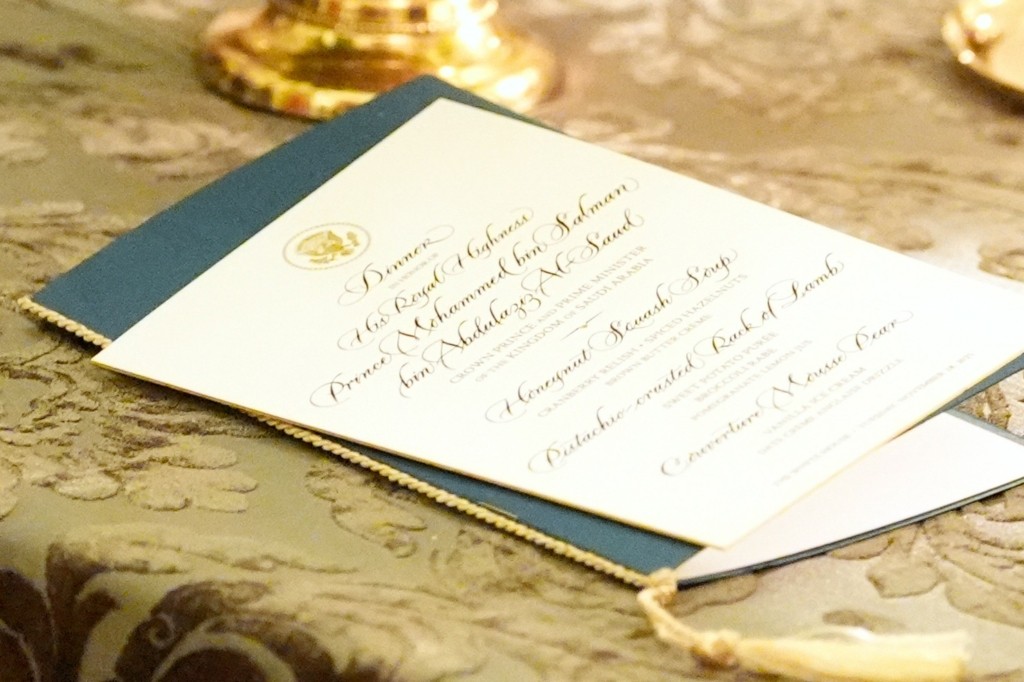 Dinner
IN HONOR OF
His Royal Highness
Prince Mohammed bin Salman
bin Abdulaziz Al-Saud
CROWN PRINCE AND PRIME MINISTER
OF THE KINGDOM OF SAUDI ARABIA
Honeynut Squash Soup
CRANBERRY RELISH • SPICED HAZELNUTS
BROWN BUTTER CRÈME
Pistachio-crusted Rack of Lamb
SWEET POTATO PURÉE
BROCCOLI RABE
Couverture Mousse Pear
VANILLA ICE CREAM